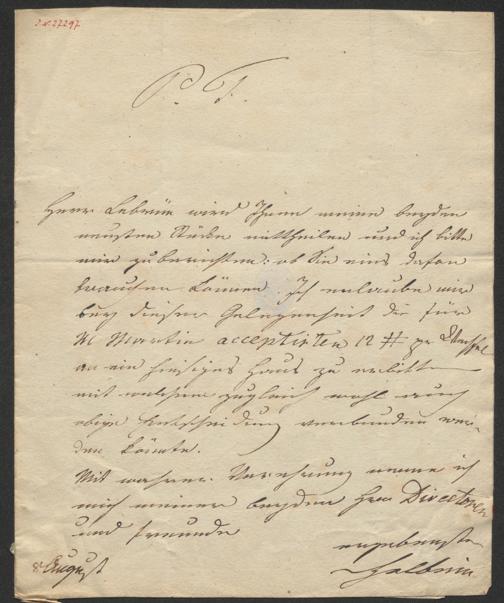 I.N. 27297
P. T.
Herr Lebrün wird Ihnen meine beyden
neusten Stücke mittheilen und ich bitte
mir zu berichten: ob Sie eins davon
brauchen können. Ich erlaube mir
bey dieser Gelegenheit die für
M Martin acceptirten 12 # pr Wechsel
an ein hiesiges Haus zu erbitten
mit welchem zugleich wohl auch
obige Entscheidung verbunden wer-
den könnte.
Mit wahrer Verehrung nenne ich
mich meiner beyden Herrn Directoren
und Freunde
ergebenster
8 August